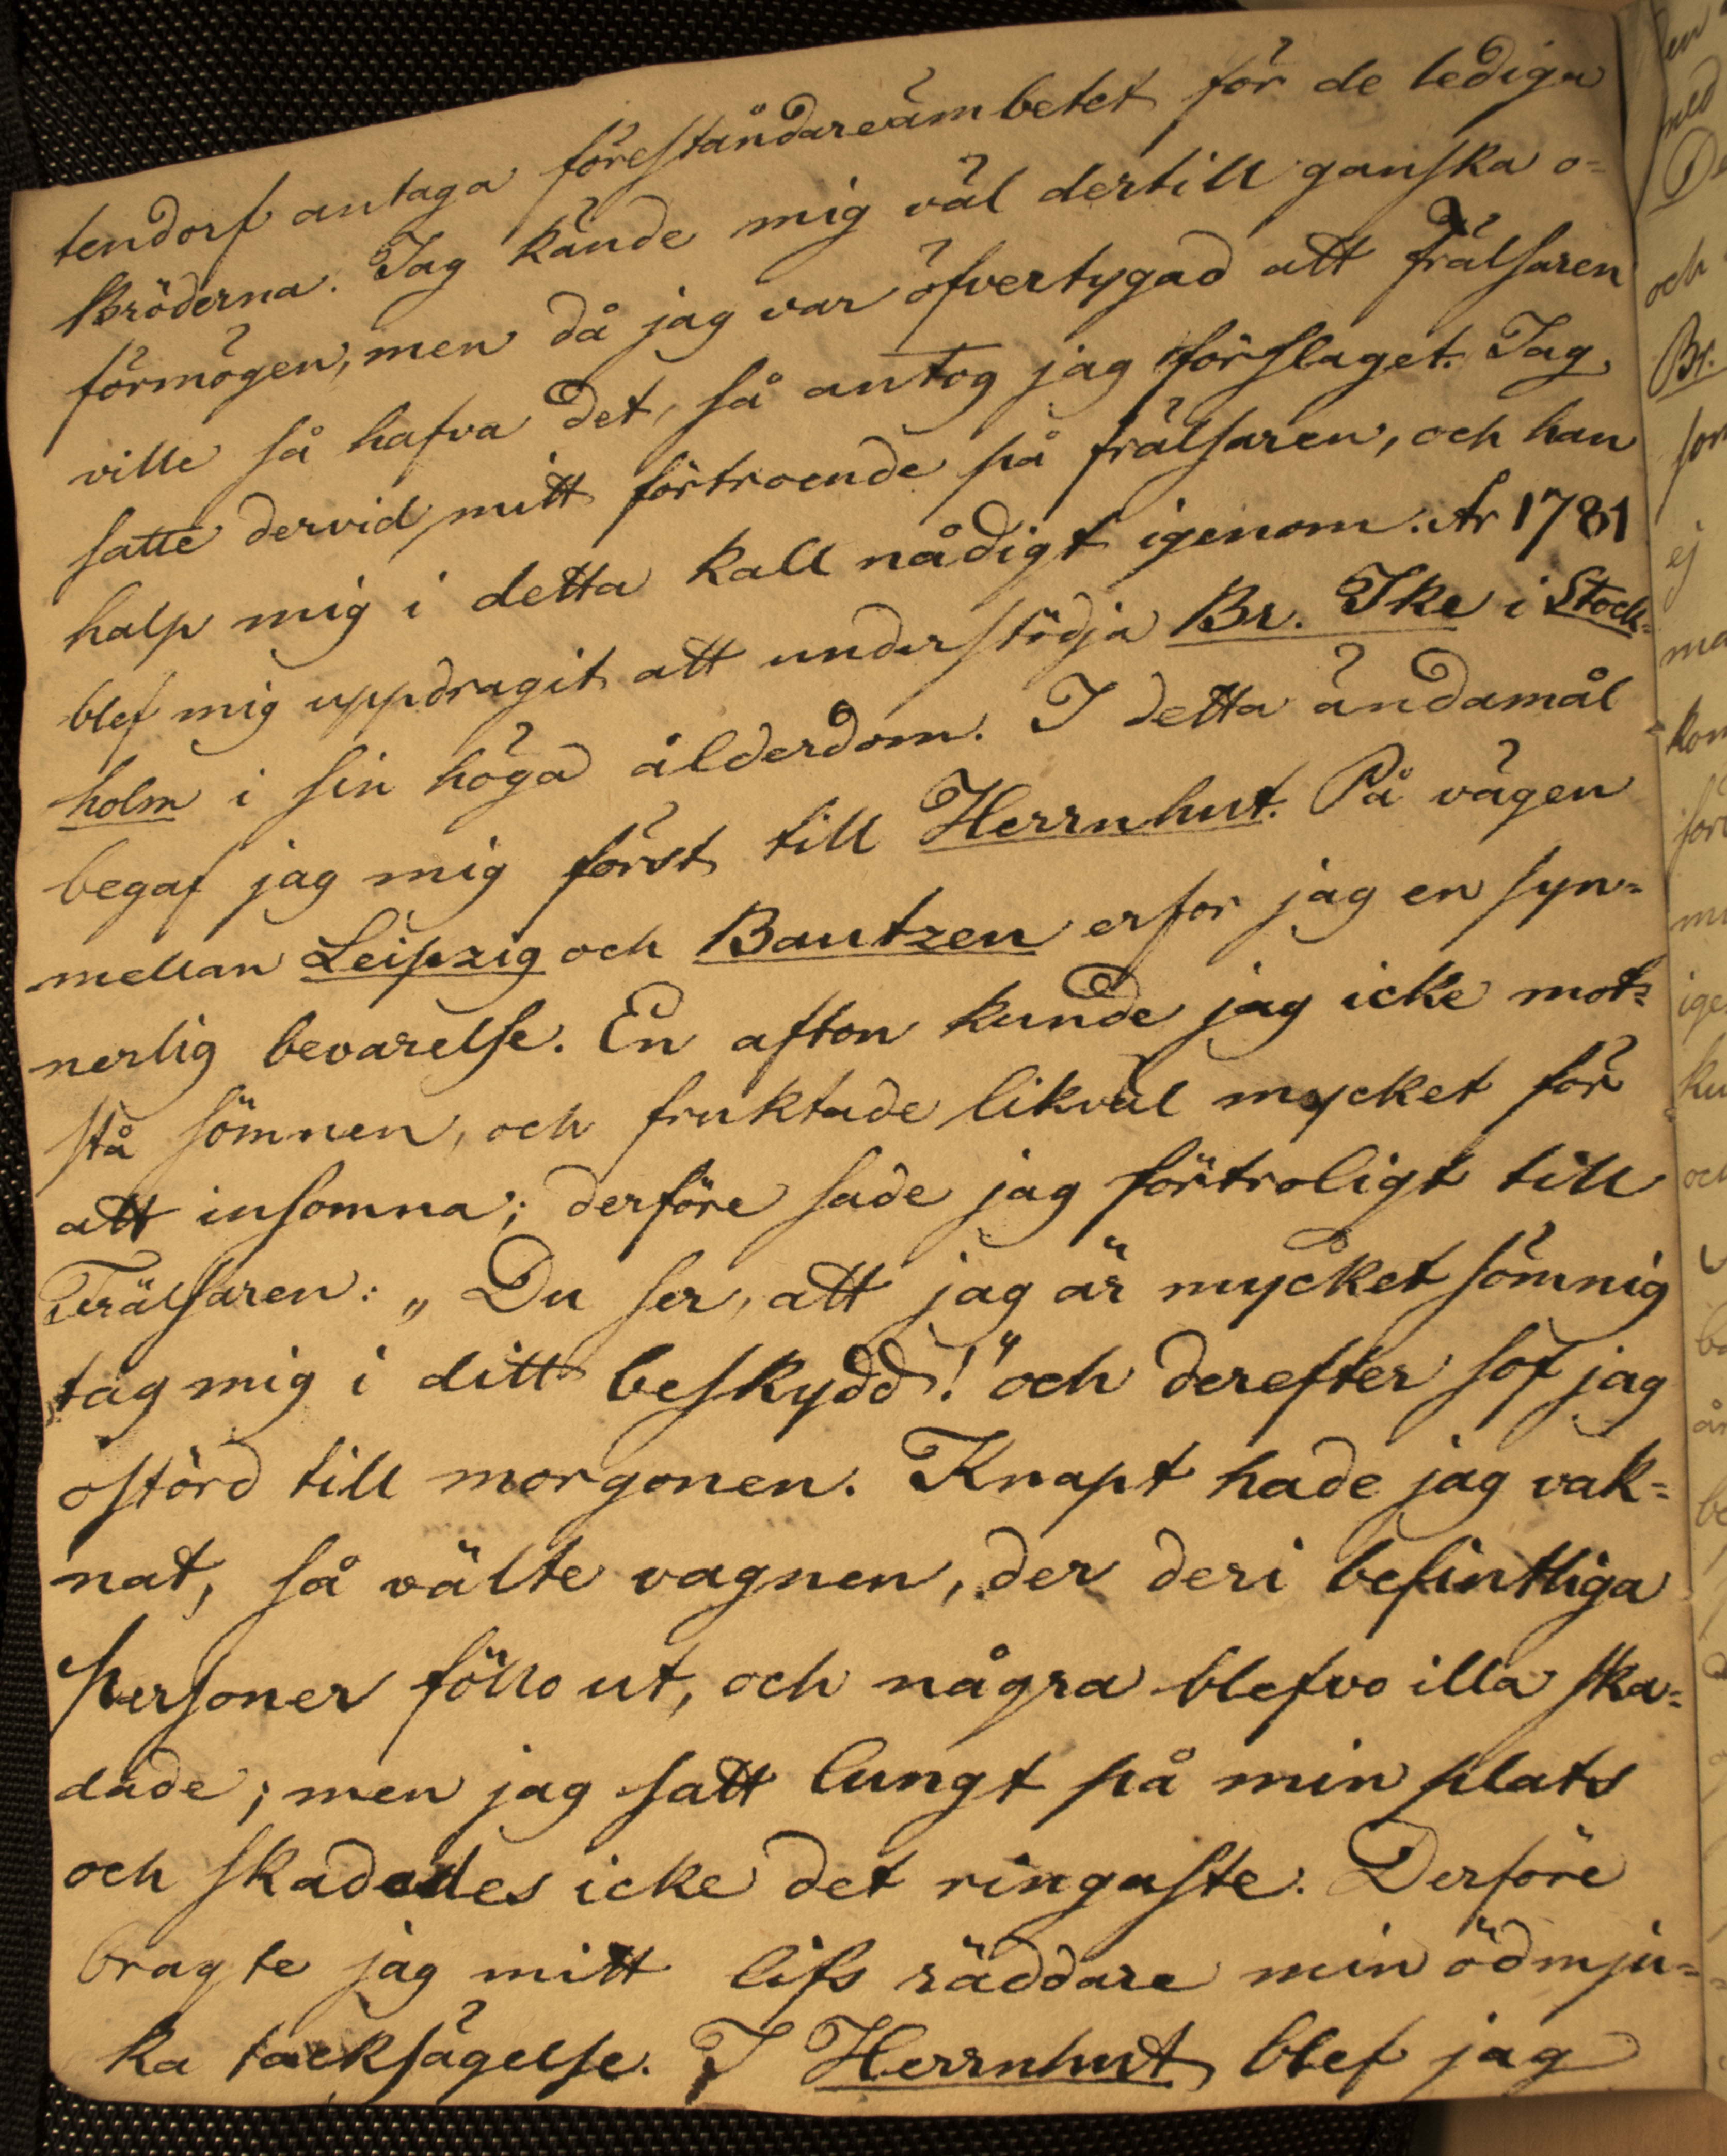 tendorf antaga föreståndareämbetet för de lediga
Bröderna. Jag kände mig väl dertill ganska o=
förmögen, men då jag var öfvertygad att Frälsaren
ville så hafva det, så antog jag förslaget. Jag
satte dervid mitt förtroende på frälsaren, och han
halp mig i detta kall nådigt igenom. År 1781
blef mig uppdragit att understödja Br. Ike i Stock=
holm i sin höga ålderdom. I detta ändamål
begaf jag mig först till Herrnhut. På vägen
mellan Leipzig och Bautzen erfor jag en syn=
nerlig bevarelse. En afton kunde jag icke mot=
stå sömnen, och fruktade likväl mycket för
att insomna; derföre sade jag förtroligt till
Frälsaren: „Du ser, att jag är mycket sömnig
tag mig i ditt beskydd!" och derefter sof jag
ostörd till morgonen. Knapt hade jag vak=
nat, så välte vagnen, der deri befintliga
Personer föllo ut, och några blefvo illa ska=
dade; men jag satt lungt på min plats
och skadades icke det ringaste. Derföre
bragte jag mitt lifs räddare min ödmju=
ka tacksägelse. I Herrnhut blef jag